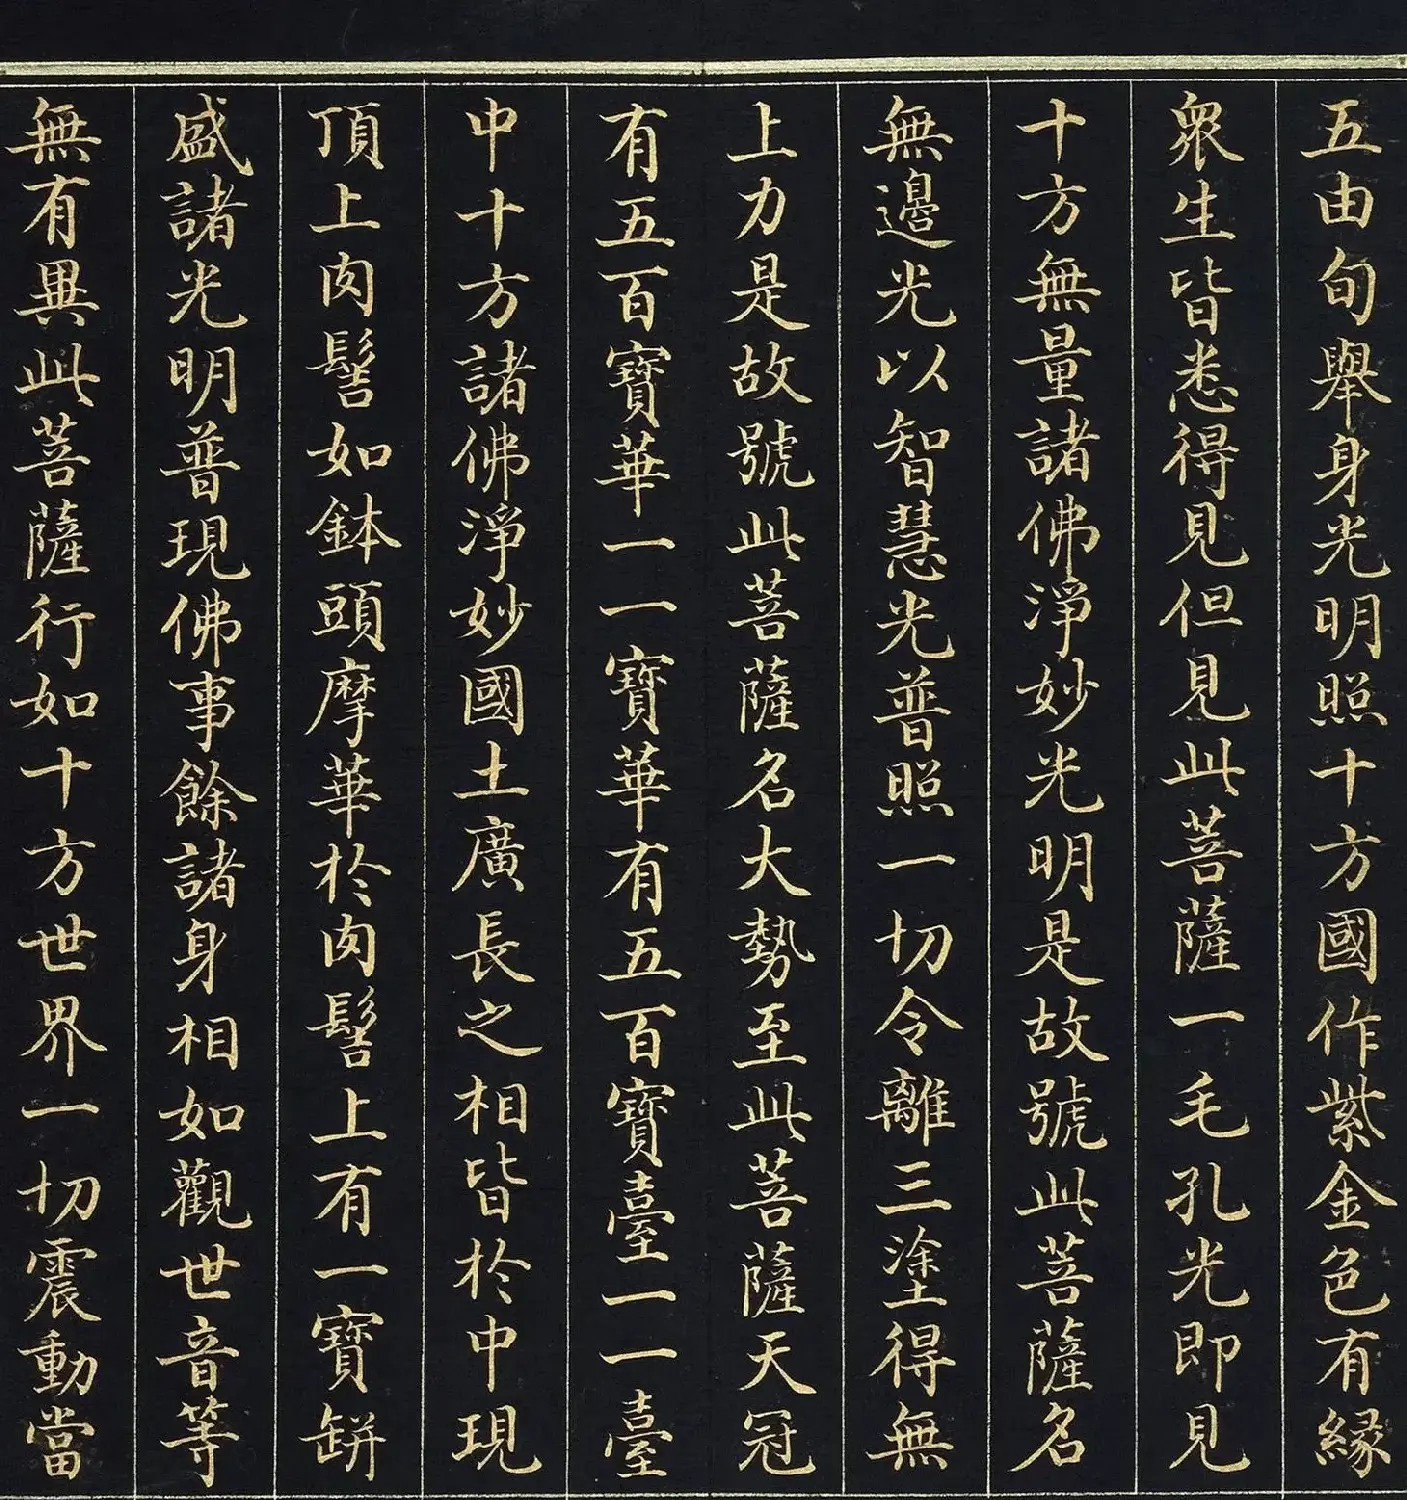 五由旬舉身光明照十方國作紫金色有緣
衆生皆悉得見但見此菩薩一毛孔光即見
十方無量諸佛淨妙光明是故號此菩薩名
無邊光以智慧光普照一切令離三塗得無
上力是故號此菩薩名大勢至此菩薩天冠
有五百寶華一一寶華有五百寶臺一一臺
中十方諸佛淨妙國土廣長之相皆於中現
頂上肉髻如鉢頭摩華於肉髻上有一寶缾
盛諸光明普現佛事餘諸身相如觀世音等
無有異此菩薩行如十方世界一切震動當